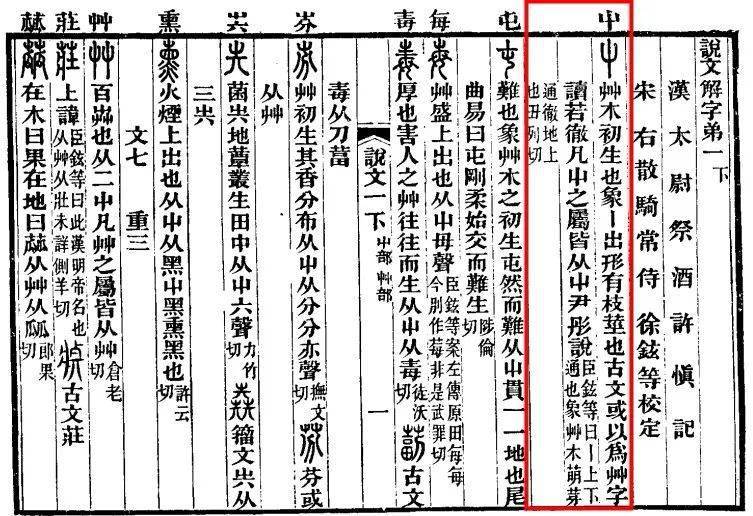 說文解字弟一下
漢太尉祭酒許愼記
宋右散騎常侍徐鉉等校定
屮 屮 艸木初生也象丨出形有枝莖也古文或以爲艸字
讀若徹凡屮之屬皆从屮尹彤說臣鉉等曰丨上下通也象艸木萌芽
通徹地上也丑列切
屯 屯 難也象艸木之初生屯然而難从屮貫一一地也尾
曲易曰屯剛柔始交而難生陟倫切
每 每 艸盛上出也从屮母聲臣鉉等案左傳原田每每今別作莓非是武罪切
毒 毒 厚也害人之艸往往而生从屮从毒徒沃切 古文
毒从刀葍
說文一下 屮部 艸部 一
芬 芬 艸初生其香分布从屮从分分亦聲撫文切 芬 芬或
从艸
𡴆 𡴆 菌𡴆地蕈叢生田中从屮六聲力竹切 籒文𡴆从
三𡴆
熏 熏 火煙上出也从屮从黑屮黑熏黑也許云切
文七 重三
艸 艸 百芔也从二屮凡艸之屬皆从艸倉老切
莊 莊 上諱臣鉉等曰此漢明帝名也从艸从壯未詳側羊切 古文莊
蓏 蓏 在木曰果在地曰蓏从艸从㼌郎果切